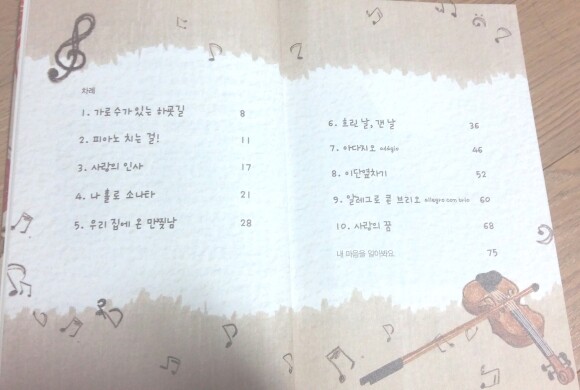 차례
1. 가로수가 있는 하굣길 8
2. 피아노 치는 걸! 11
3. 사랑의 인사 17
4. 나 홀로 소나타 21
5. 우리 집에 온 만찢남 28
6. 흐린 날, 갠 날 36
7. 아다지오 adagio 46
8. 이단옆차기 52
9. 알레그로 콘 브리오 allegro con brio 60
10. 사랑의 꿈 68
내 마음을 알아봐요. 75